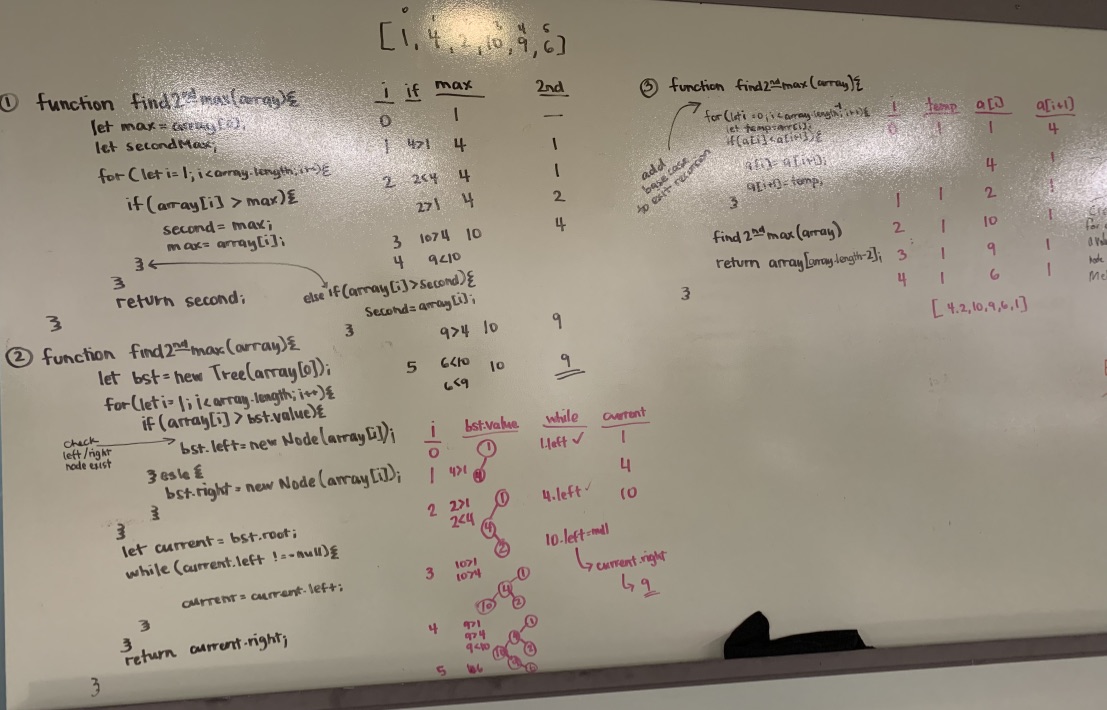 0 1 3 4 5
[1, 4, 2, 10, 9, 6]
① function find2ndmax(array){
let max = array[0];
let secondMax;
for(let i=1; i<array.length; i++){
if(array[i] > max){
second = max;
max = array[i];
}
}
return second;
}
else if(array[i] > second){
second = array[i];
}
i if max 2nd
0 1 —
1 4>1 4 1
2 2<4 4 1
2>1 4 2
3 10>4 10 4
4 9<10
9>4 10 9
5 6<10 10 9
6<9
② function find2ndmax(array){
let bst = new Tree(array[0]);
for(let i=1; i<array.length; i++){
if(array[i] > bst.value){
check
left/right
node exist
bst.left = new Node(array[i]);
}esle{
bst.right = new Node(array[i]);
}
}
let current = bst.root;
while(current.left !== null){
current = current.left;
}
}
return current.right;
}
i bst.value while current
0 1 1.left ✓ 1
1 4>1 4 4
2 2>1 1 4.left ✓ 10
2<4 4
2
10.left=null
current.right
9
3 10>1 1
10>4 4
10 2
4 9>1 1
9>4
9<10
5
③ function find2ndmax(array){
for(let i=0; i<array.length-1; i++){
let temp=arr[i];
if(a[i]<a[i+1]){
a[i] = a[i+1];
a[i+1] = temp;
}
add
base case
to exit recursion
find2ndmax(array)
return array[array.length-2];
}
i temp a[i] a[i+1]
0 1 1 4
4 1
1 1 2 1
2 1 10 1
3 1 9 1
4 1 6 1
[4,2,10,9,6,1]